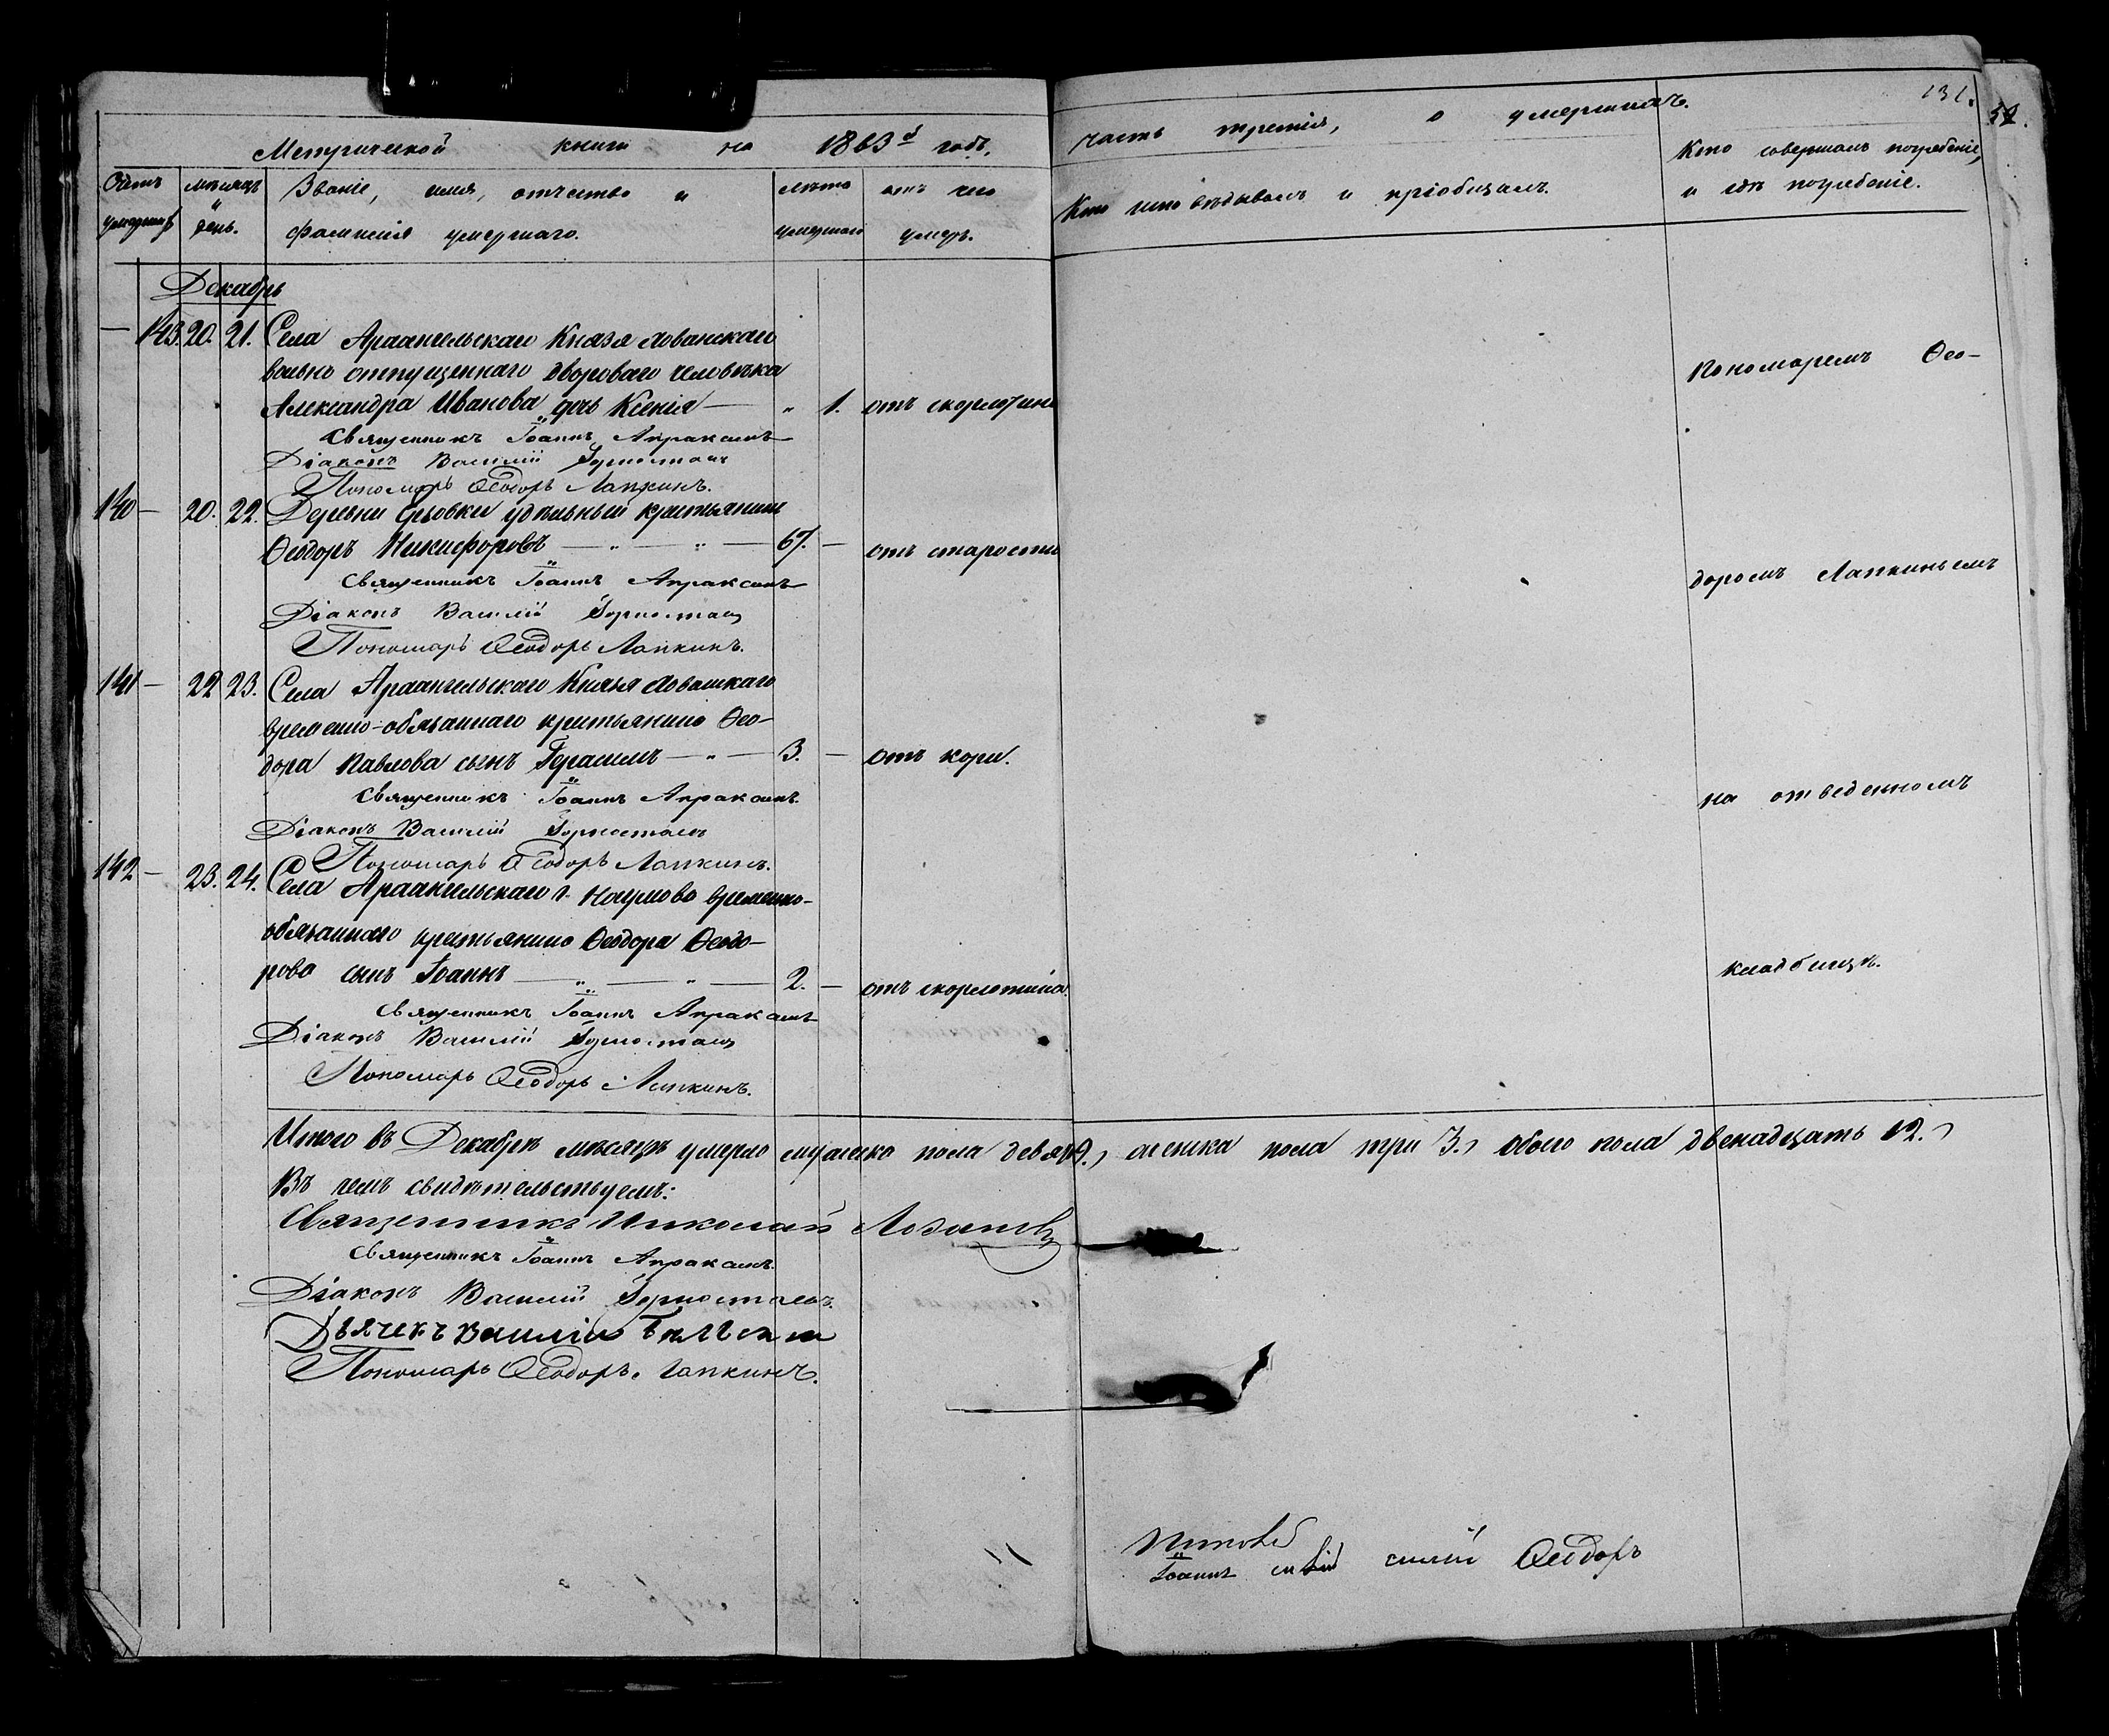 Метрической книги на 1863й годъ.
часть третія, о умершихъ.
131.
Счетъ умершихъ
мѣсяцъ и день.
Званіе, имя, отчество и
фамилія умершаго.
лѣта умершаго
отъ чего умеръ.
Кто исповѣдывалъ и пріобщалъ.
Кто совершалъ погребеніе,
и гдѣ погребеніе.
Декабрь
— 143. 20. 21. Села Архангельскаго Князя Хованскаго
вольно отпущеннаго двороваго человѣка
Александра Иванова дочь Ксенія — „ 1. отъ скорлотина
Священникъ Іоаннъ Апраксинъ
Діаконъ Василій Горностаевъ
Пономарь Ѳеодоръ Лапкинъ.
140 — 20. 22. Деревни удѣльный крестьянинъ
Ѳеодоръ Никифоровъ — „ — „ — 67. — отъ старости
Священникъ Іоаннъ Апраксинъ
Діаконъ Василій Горностаевъ
Пономарь Ѳеодоръ Лапкинъ.
141 — 22 23. Села Архангельскаго Князя Хованскаго
временно-обязаннаго крестьянина Ѳео-
дора Павлова сынъ Герасимъ — „ — 3. — отъ кори.
Священникъ Іоаннъ Апраксинъ.
Діаконъ Василій Горностаевъ
Пономарь Ѳеодоръ Лапкинъ.
142 — 23. 24. Села Архангельскаго г. Наумова временно-
обязаннаго крестьянина Ѳеодора Ѳеодо-
рова сынъ Іоаннъ — „ — „ — 2. — отъ скорлотина.
Священникъ Іоаннъ Апраксинъ
Діаконъ Василій Горностаевъ
Пономарь Ѳеодоръ Лапкинъ.
Пономаремъ Ѳео-
доромъ Лапкинымъ
на отведенномъ
кладбищѣ.
Итого въ Декабрѣ мѣсяцѣ умерло мужеска пола девять 9., женска пола три 3., обоего пола двенадцать 12.,
Въ чемъ свидѣтельствуемъ:
Священникъ Николай
Священникъ Іоаннъ Апраксинъ.
Діаконъ Василій Горностаевъ.
Дьячекъ Василій
Пономарь Ѳеодоръ Лапкинъ.
Іоаннъ силій Ѳеодоръ